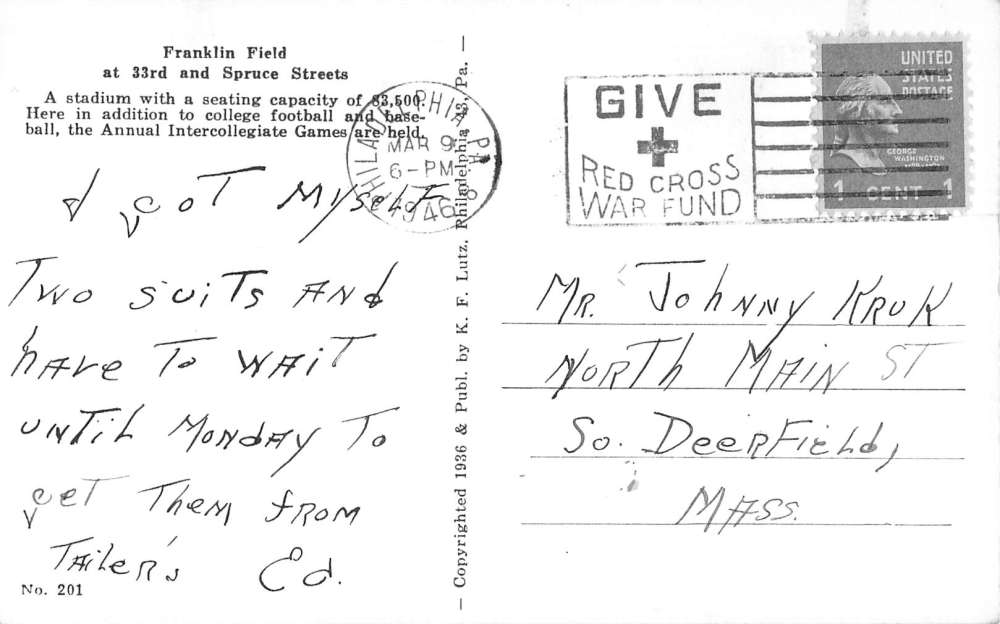 Franklin Field
at 33rd and Spruce Streets
A stadium with a seating capacity of 83,500.
Here in addition to college football and base-
ball, the Annual Intercollegiate Games are held.
I GOT MYSELF
TWO SUITS AND
HAVE TO WAIT
UNTIL MONDAY TO
GET THEM FROM
TAILER'S ED.
No. 201
— Copyrighted 1936 & Publ. by K. F. Lutz, Philadelphia 43, Pa. —
PHILADELPHIA, PA.
MAR 9
6-PM
1946
GIVE
RED CROSS
WAR FUND
UNITED
STATES
POSTAGE
GEORGE
WASHINGTON
1 CENT 1
MR. JOHNNY KRUK
NORTH MAIN ST
SO. DEERFIELD,
MASS.